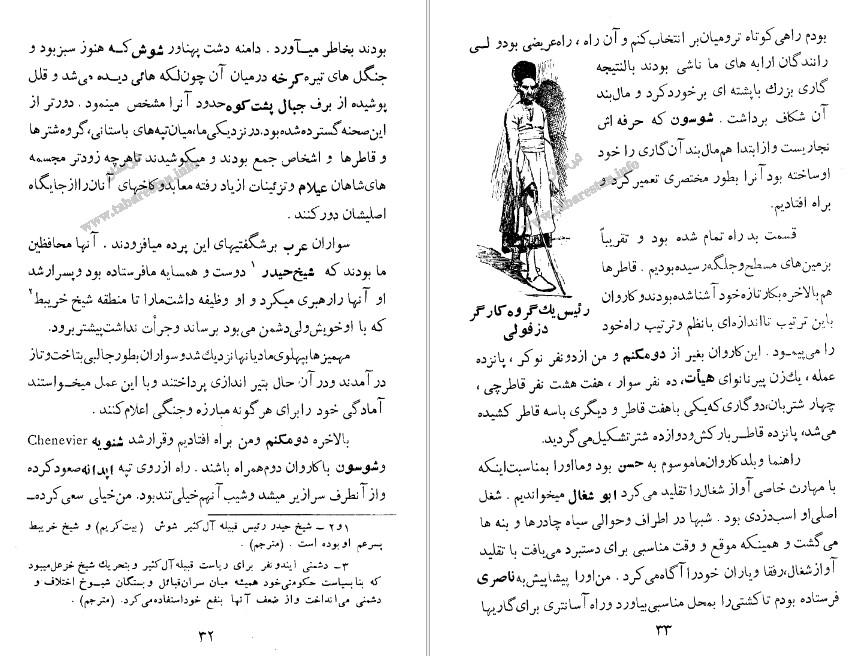 بودند بخاطر میآورد . دامنه دشت پهناور شوش که هنوز سبزبود و
جنگل های تیره کرخه درمیان آن چون لکه هائی دیده می‌شد و قلل
پوشیده از برف جبال پشت‌کوه حدود آنرا مشخص مینمود . دورتر از
این صحنه گسترده شده بود، در نزدیکی ما، میان تپه‌های باستانی، گروه شترها
و قاطرها و اشخاص جمع بودند و میکوشیدند تا هرچه زودتر مجسمه
های شاهان عیلام و تزئینات از یاد رفته معابد و کاخهای آنان را از جایگاه
اصلیشان دور کنند .
سواران عرب برشگفتیهای این پرده میافزودند . آنها محافظین
ما بودند که شیخ حیدر ۱ دوست و همسایه ما فرستاده بود و پسر ارشد
او آنها را رهبری میکرد و او وظیفه داشت ما را تا منطقه شیخ خریبط ۲
که با او خویش ولی دشمن می‌بود برساند و جرأت نداشت پیشتر برود.
مهمیزها بپهلوی مادیانها نزدیک شد و سواران بطور جالبی بتاخت و تاز
در آمدند و در آن حال بتیر اندازی پرداختند و با این عمل میخواستند
آمادگی خود را برای هرگونه مبارزه و جنگی اعلام کنند .
بالاخره دومکنم ومن براه افتادیم و قرار شد شنویه Chenevier
و شوسون با کاروان دوم همراه باشند . راه از روی تپه اپدانه صعود کرده
و از آنطرف سرازیر میشد و شیب آنهم خیلی تند بود. من خیلی سعی کرده
۱و۲ ـ شیخ حیدر رئیس قبیله آل کثیر شوش (بیت کریم) و شیخ خریبط
پسرعم او بوده است . (مترجم) .
۳ ـ دشمنی ایندونفر برای ریاست قبیله آل کثیر و بتحریک شیخ خزعل میبود
که بنا بسیاست حکومتی خود همیشه میان سران قبائل و بستگان شیوخ اختلاف و
دشمنی می‌انداخت و از ضعف آنها بنفع خود استفاده میکرد. (مترجم) .
۳۲
بودم راهی کوتاه تر و میان‌بر انتخاب کنم و آن راه ، راه عریضی بود ولی
رانندگان ارابه های ما ناشی بودند بالنتیجه
گاری بزرگ با پشته ای برخورد کرد و مال‌بند
آن شکاف برداشت . شوسون که حرفه اش
نجاریست و از ابتدا هم مال‌بند آن گاری را خود
او ساخته بود آنرا بطور مختصری تعمیر کرد و
براه افتادیم.
قسمت بد راه تمام شده بود و تقریباً
بزمین‌های مسطح و جلگه رسیده بودیم . قاطرها
هم بالاخره بکار تازه خود آشنا شده بودند و کاروان
باین ترتیب تا اندازه‌ای با نظم و ترتیب راه خود
رئیس یک گروه کارگر
دزفولی
را می‌پیمود . این کاروان بغیر از دومکنم و من از دو نفر نوکر ، پانزده
عمله ، یک زن پیر نانوای هیأت، ده نفر سوار ، هفت هشت نفر قاطرچی ،
چهار شتربان، دو گاری که یکی با هفت قاطر و دیگری با سه قاطر کشیده
می‌شد، پانزده قاطر بارکش و دوازده شتر تشکیل می‌گردید.
راهنما و بلد کاروان ما موسوم به حسن بود و ما او را بمناسبت اینکه
با مهارت خاصی آواز شغال را تقلید می‌کرد ابو شغال میخواندیم . شغل
اصلی او اسب دزدی بود . شبها در اطراف و حوالی سیاه چادرها و بنه ها
می‌گشت و همینکه موقع و وقت مناسبی برای دستبرد می‌یافت با تقلید
آواز شغال، رفقا و یاران خود را آگاه می‌کرد . من او را پیشاپیش به ناصری
فرستاده بودم تا کشتی را بمحل مناسبی بیاورد و راه آسانتری برای گاریها
۳۳
www.tabarestan.info
www.tabarestan.info